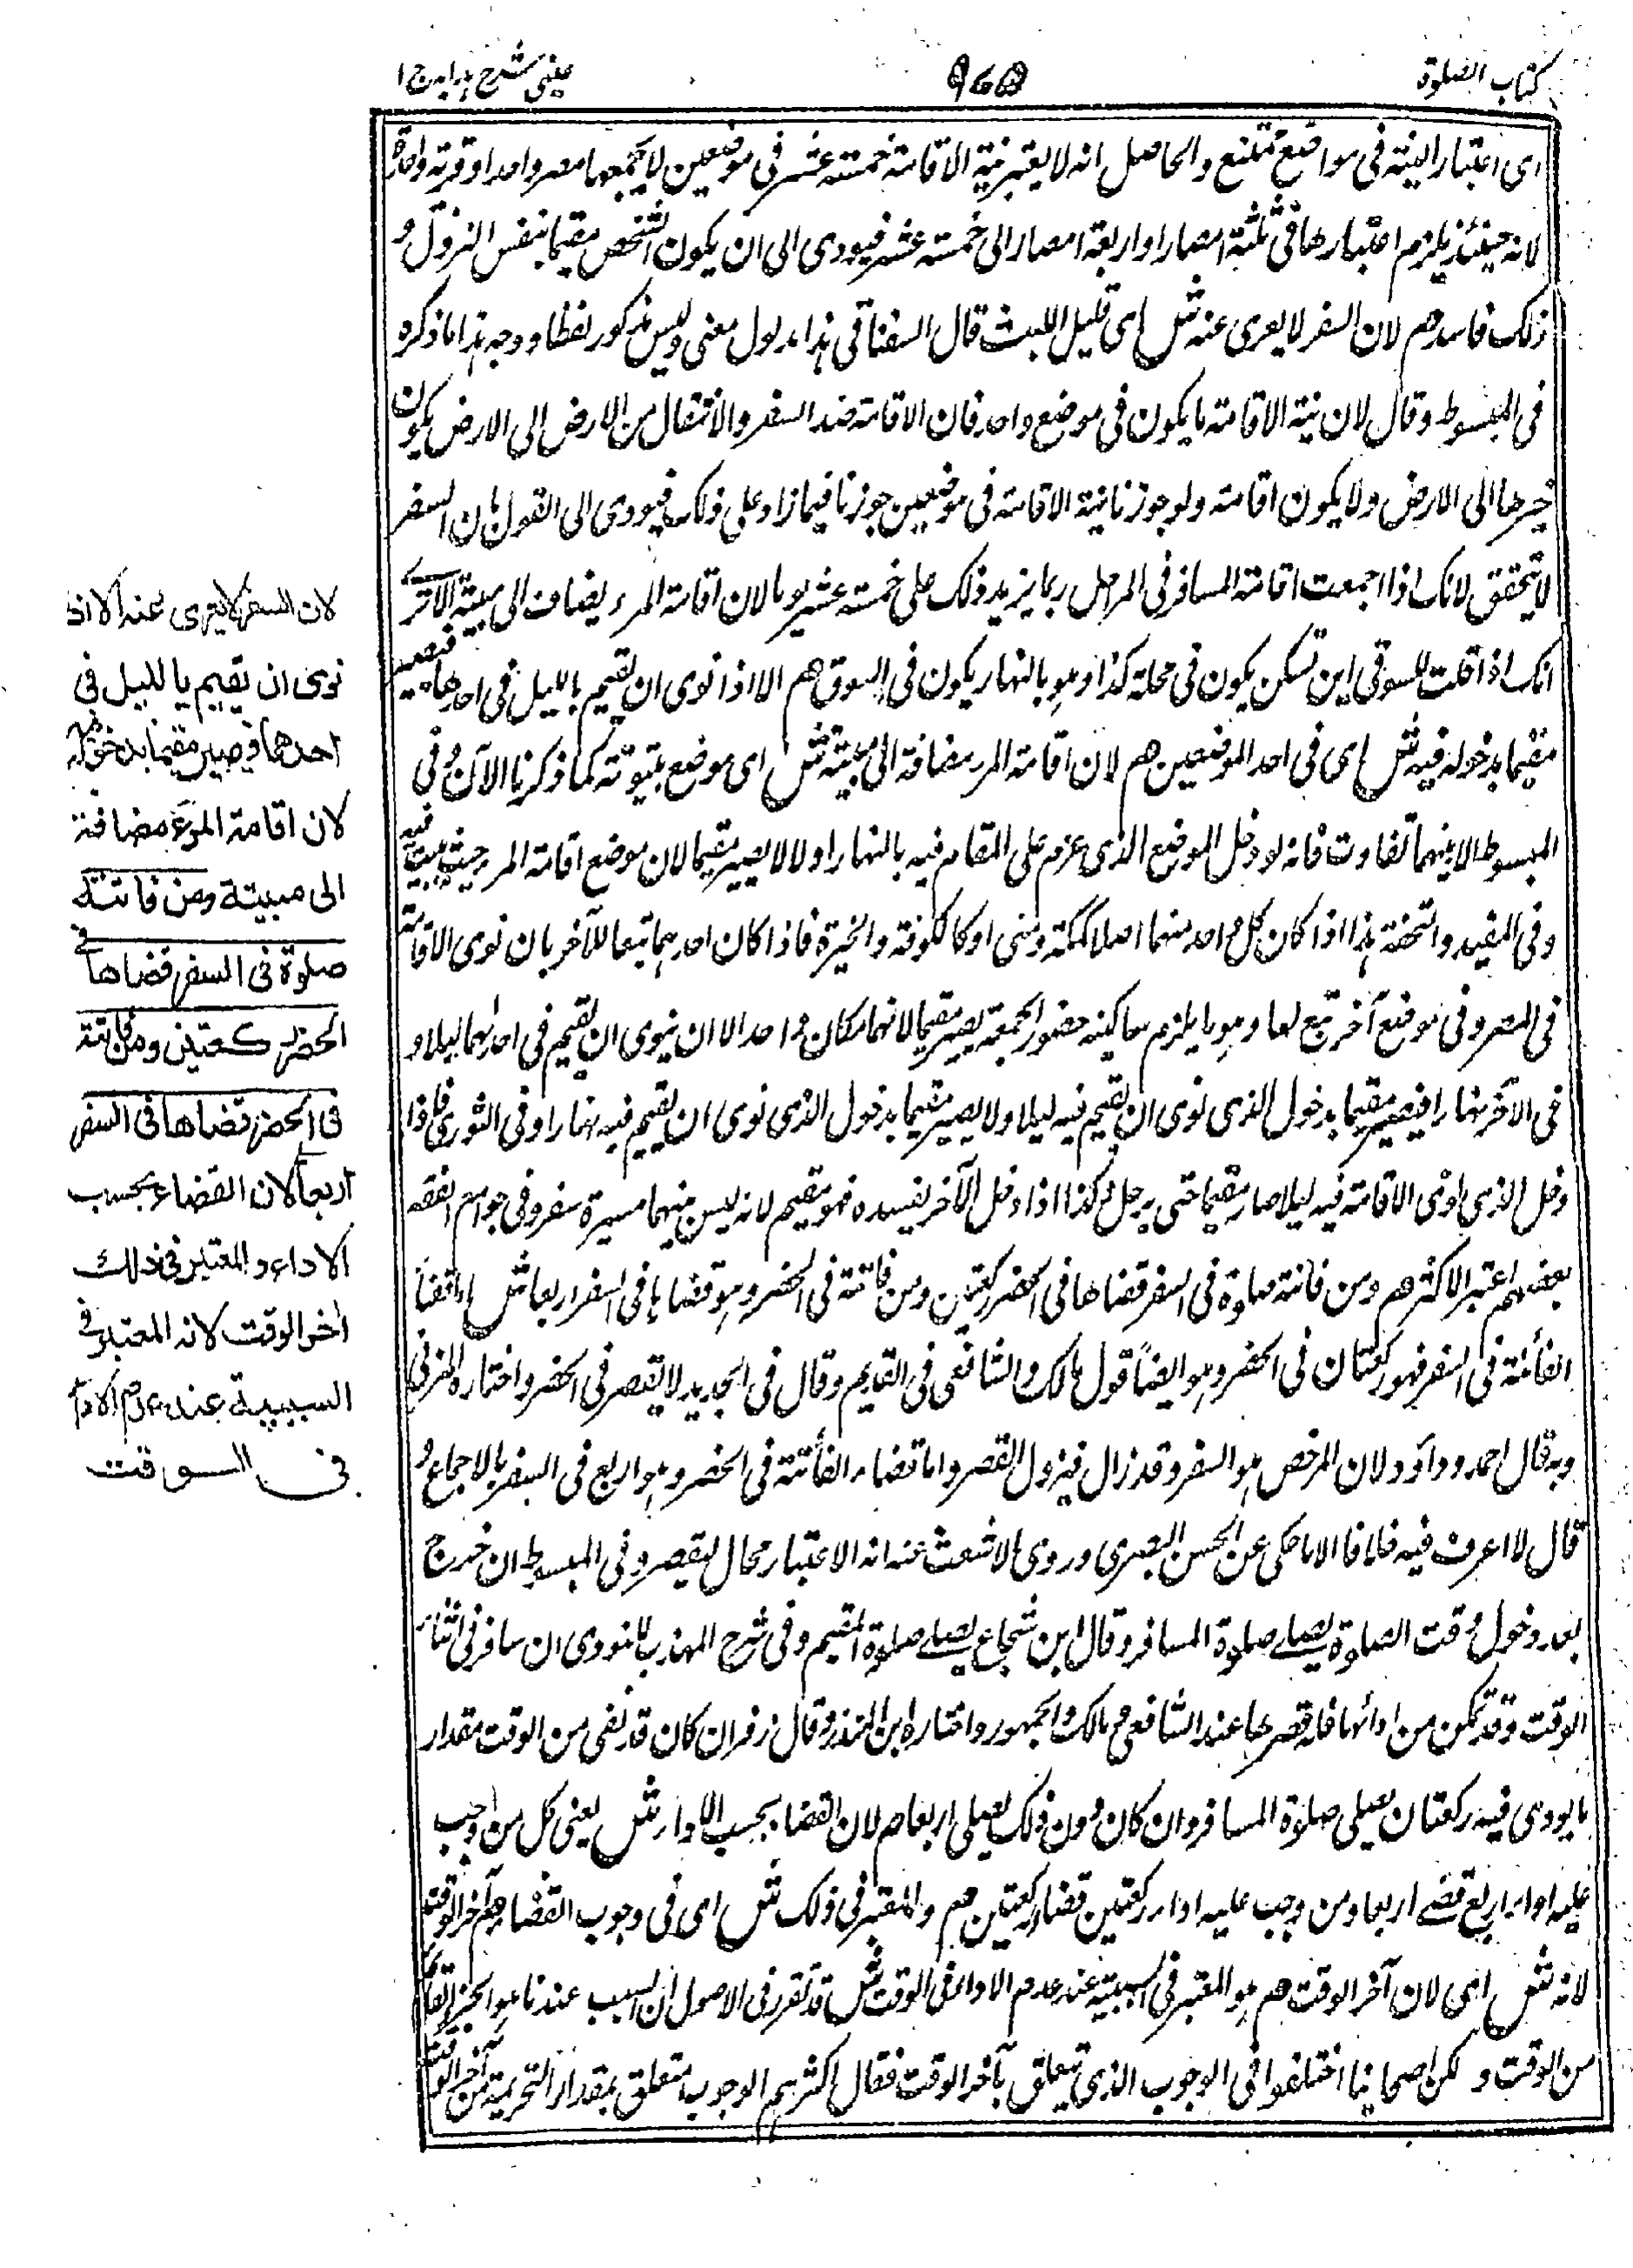 كتاب الصلوة
٩٦٥
عينى شرح هدايه ج ١
اى اعتبار النية فى مواضع ممتنع والحاصل انه لا يعتبر نية الاقامة خمسة عشر فى موضعين لا يجمعهما مصر واحد او قرية واحدة
لانه حينئذ يلزم اعتبارها فى ثلثة امصار او اربعة امصار الى خمسة عشر فيودى الى ان يكون الشخص مقيما بنفس النزول و
ذلك فاسد هم لان السفر لا يعرى عنه ش اى قليل اللبث قال السغناقى هذا مدلول معنى وليس مذكور لفظا ووجه هذا ما ذكره
فى المبسوط وقال لان نية الاقامة ما يكون فى موضع واحد فان الاقامة ضد السفر والانتقال من الارض الى الارض يكون
ضربا الى الارض ولا يكون اقامة ولو جوزنا نية الاقامة فى موضعين جوزنا فيما زاد على ذلك فيودى الى القول بان السفر
لا يتحقق لانك اذا جمعت اقامة المسافر فى المراحل ربما يزيد ذلك على خمسة عشر يوما لان اقامة المرء يضاف الى مبيته الا ترى
انك اذا قلت للسوقى اين تسكن يكون فى محلة كذا وهو بالنهار يكون فى السوق هم الا اذا نوى ان يقيم بالليل فى احدهما فيصير
مقيما بدخوله فيه ش اى فى احد الموضعين هم لان اقامة المرء مضافة الى مبيته ش اى موضع بيتوتته كما ذكرنا الآن وفى
المبسوط الا بينهما تفاوت فانه لو دخل الموضع الذى عزم على المقام فيه بالنهار اولا لا يصير مقيما لان موضع اقامة المرء حيث يبيت فيه
وفى المفيد والتحفة هذا اذا كان كل واحد منهما اصلا كمكة ومنى او كالكوفة والحيرة فاذا كان احدهما تبعا للآخر بان نوى الاقامة
فى المصر وفى موضع آخر تبع لها وهو ما يلزم ساكنيه حضور الجمعة يصير مقيما لانهما مكان واحد الا ان ينوى ان يقيم فى احدهما ليلا و
فى الآخر نهارا فيصير مقيما بدخول الذى نوى ان يقيم فيه ليلا ولا يصير مقيما بدخول الذى نوى ان يقيم فيه نهارا وفى الثورى فاذا
دخل الذى نوى الاقامة فيه ليلا صار مقيما حتى يرحل وكذا اذا دخل الآخر بقسده فهو مقيم لانه ليس بينهما مسيرة سفر وفى جوامع الفقه
بعضهم اعتبر الاكثر هم ومن فاتته صلوة فى السفر قضاها فى الحضر ركعتين ومن فاتته فى الحضر وهو قضاها فى السفر اربعا ش اما قضاء
الفائتة فى السفر فهو ركعتان فى الحضر وهو ايضا قول مالك والشافعى فى القديم وقال فى الجديد لا يقصر فى الحضر واختاره المزنى
وبه قال احمد وداود لان المرخص هو السفر وقد زال فيزول القصر واما قضاء الفائتة فى الحضر وهو اربع فى السفر بالاجماع و
قال لا اعرف فيه خلافا الا ما حكى عن الحسن البصرى وروى الاشعث عنه انه الاعتبار بحال ليقصر وفى المبسوط ان خرج
بعد دخول وقت الصلوة يصلى صلوة المسافر وقال ابن شجاع يصلى صلوة المقيم وفى شرح المهذب للنووى ان سافر فى اثناء
الوقت وقد تمكن من ادائها فله قصرها عند الشافعى ومالك والجمهور واختاره ابن المنذر وقال زفر ان كان قد بقى من الوقت مقدار
ما يودى فيه ركعتان يصلى صلاة المسافر وان كان دون ذلك يصلى اربعا هم لان القضاء بحسب الاداء ش يعنى كل من وجب
عليه اداء اربع قضى اربعا ومن وجب عليه اداء ركعتين قضاء ركعتين هم والمعتبر فى ذلك ش اى فى وجوب القضاء هم آخر الوقت
لانه ش اى لان آخر الوقت هم هو المعتبر فى السببية عند عدم الاداء فى الوقت ش قد تقرر فى الاصول ان السبب عندنا هو الجزء القائم
من الوقت و لكن اصحابنا اختلفوا فى الوجوب الذى يتعلق بآخر الوقت فقال اكثرهم الوجوب متعلق بمقدار التحريمة من آخر الوقت
لان السفر لا يعرى عنه الا اذا
نوى ان يقيم بالليل فى
احدهما فيصير مقيما بدخوله
لان اقامة المرء مضافة
الى مبيته ومن فاتته
صلوة فى السفر قضاها فى
الحضر ركعتين ومن فاتته
فى الحضر قضاها فى السفر
اربعا لان القضاء بحسب
الاداء و المعتبر فى ذلك
اخر الوقت لانه المعتبر فى
السببية عند عدم الاداء
فى الوقت